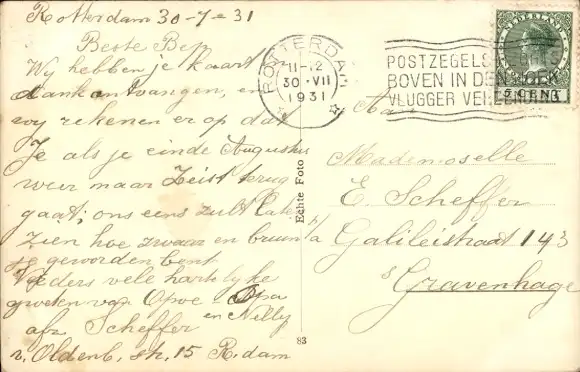 Rotterdam 30-7-31
Beste Bep
Wij hebben je kaart in
dank ontvangen, en
wij rekenen er op dat
Je als je einde Augustus
weer naar Zeist terug
gaat; ons eens zult laten
zien hoe zwaar en bruin
je geworden bent
Verders vele hartelijke
groeten van Opoe Opa
en Nelly
afz. Scheffer
v. Oldenb. str. 15 R.dam
Echte Foto
83
ROTTERDAM
11-12
30.VII
1931
POSTZEGELS RECHTS
BOVEN IN DEN HOEK
VLUGGER VERZENDING
NEDERLAND
5 CENT
Aan
Mademoselle
E. Scheffer
p/a Galileistraat 143
s Gravenhage